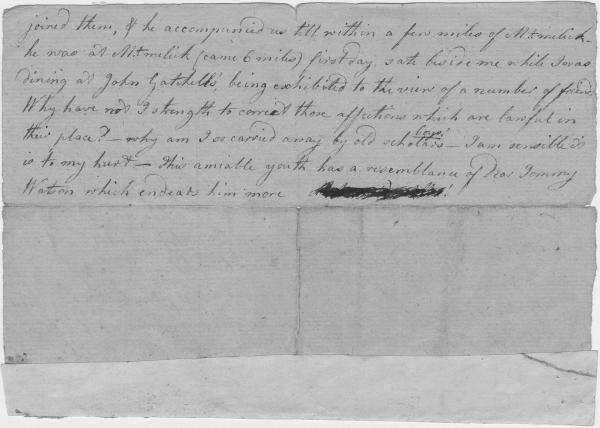 joined them, & he accompanied us till within a few miles of Mtmelick-
he was at Mtmelick (came 6 miles) first day, sate beside me while I was
dining at John Gatchell's, being exhibited to the view of a number of friends
Why have not I strength to correct those affections which are lawful in
their place? - why am I so carried away by old scholars - I am sensible it
is to my hurt - This amiable youth has a resemblance of Dear Tommy
Watson which endears him more !